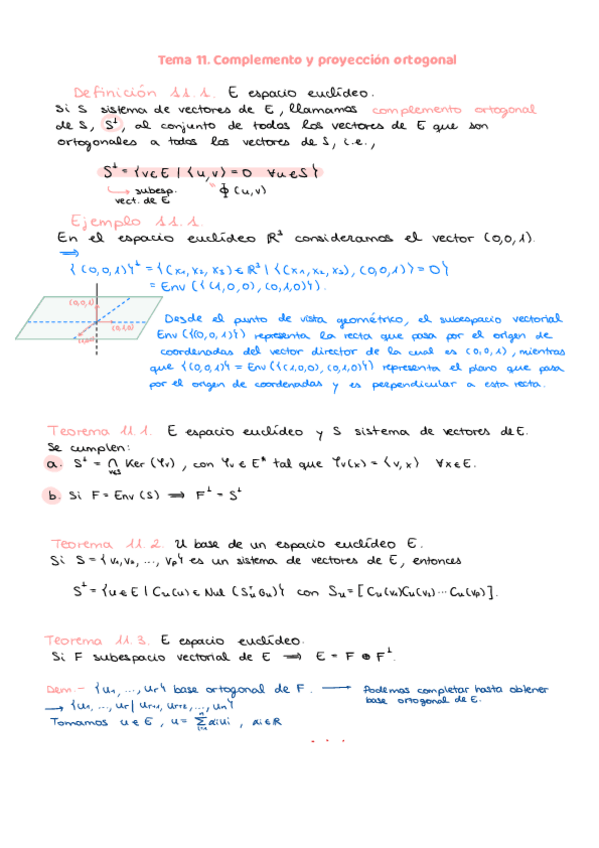 Tema 11. Complemento y proyección ortogonal
Definición 11.1. E espacio euclídeo.
Si S sistema de vectores de E, llamamos complemento ortogonal
de S, S⊥, al conjunto de todos los vectores de E que son
ortogonales a todos los vectores de S, i.e.,
S⊥ = {v∈E | ⟨u,v⟩ = 0 ∀u∈S}
subesp. vect. de E
" Φ(u,v)
Ejemplo 11.1.
En el espacio euclídeo ℝ³ consideramos el vector (0,0,1).
⟹
{(0,0,1)}⊥ = {(x₁, x₂, x₃) ∈ ℝ³ | ⟨(x₁, x₂, x₃), (0,0,1)⟩ = 0}
= Env ({(1,0,0), (0,1,0)}).
(0,0,1)
(0,1,0)
(1,0,0)
Desde el punto de vista geométrico, el subespacio vectorial
Env ({(0,0,1)}) representa la recta que pasa por el origen de
coordenadas del vector director de la cual es (0,0,1), mientras
que {(0,0,1)}⊥ = Env ({(1,0,0), (0,1,0)}) representa el plano que pasa
por el origen de coordenadas y es perpendicular a esta recta.
Teorema 11.1. E espacio euclídeo y S sistema de vectores de E.
Se cumplen:
a. S⊥ = ∩ v∈S Ker (φv), con φv ∈ E* tal que φv(x) = ⟨v,x⟩ ∀x∈E.
b. Si F = Env (S) ⟹ F⊥ = S⊥
Teorema 11.2. U base de un espacio euclídeo E.
Si S = {v₁, v₂, ..., vp} es un sistema de vectores de E, entonces
S⊥ = {u∈E | Cu(u) ∈ Nul (Suᵗ Gu)} con Su = [Cu(v₁) Cu(v₂) ... Cu(vp)].
Teorema 11.3. E espacio euclídeo.
Si F subespacio vectorial de E ⟹ E = F ⊕ F⊥.
Dem - {u₁, ..., ur} base ortogonal de F. ⟶ Podemos completar hasta obtener
base ortogonal de E.
⟶ {u₁, ..., ur | ur+1, ur+2, ..., un}
Tomamos u∈E, u = Σⁿᵢ₌₁ αᵢuᵢ, αᵢ∈ℝ
. . .